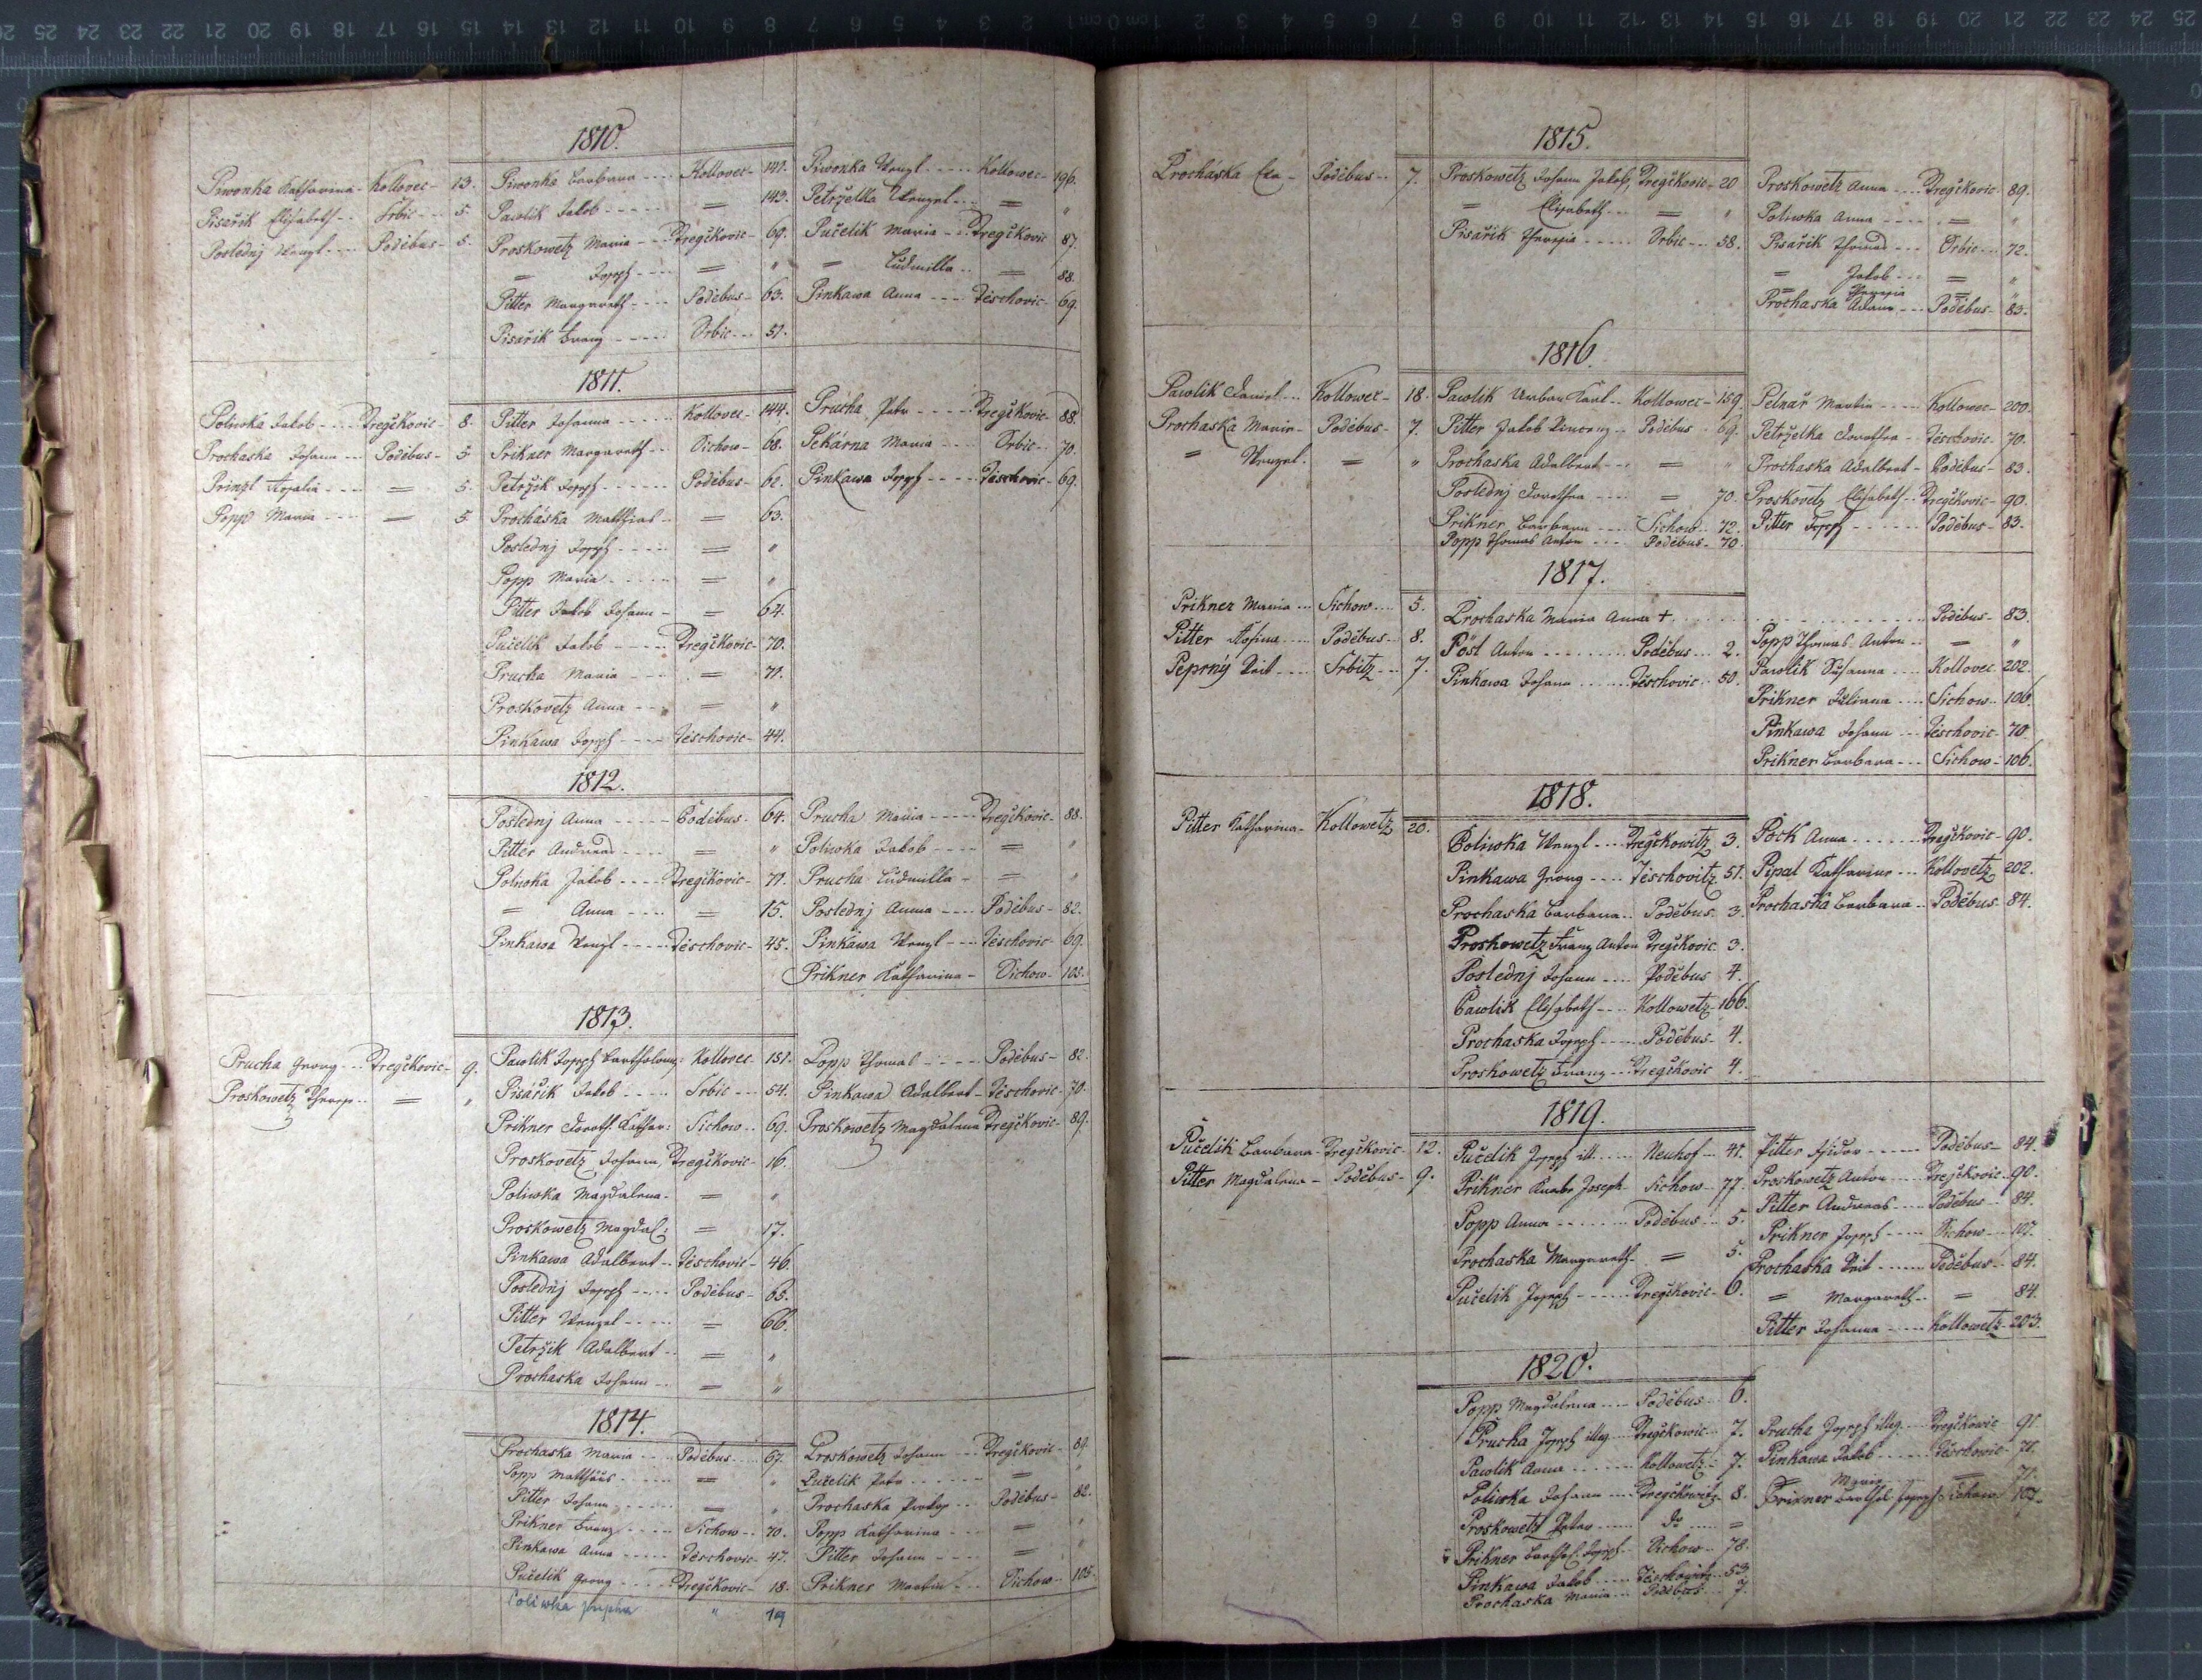 1810.
Piwonka Katharina - Kollovec - 13.
Pisařik Elisabeth - Srbic - 5.
Poslednj Wenzl - Poděbus - 5.
Piwonka Barbara - Kollovec - 141.
Pawlik Jakob - = 143.
Proskowetz Maria - Dregčkovic - 69.
= Joseph - = "
Pitter Margareth - Poděbus - 63.
Pisařik Franz - Srbic - 51.
Piwonka Wenzl - Kollowec - 196.
Petrzelka Wenzel - = "
Pučelik Maria - Dregčkovic 87.
= Ludmilla - = 88.
Pinkawa Anna - Těschovic - 69.
1811.
Poliwka Jakob - Dregčkovic - 8.
Prochaska Johann - Poděbus - 5.
Prinzl Rosalia - = 5.
Popp Maria - = 5.
Pitter Johanna - Kollovec - 144.
Prikner Margareth - Sichow - 68.
Petržik Joseph - Poděbus - 62.
Procháska Matthias - = 63.
Poslednj Joseph - = "
Popp Maria - = "
Pitter Jakob Johann - = 64.
Pučelik Jakob - Dregčkovic - 70.
Prucha Maria - = 71.
Proskovetz Anna - = "
Pinkawa Joseph - Těschovic - 44.
Prucha Petr - Dregčkovic - 88.
Pekárna Maria - Srbic - 70.
Pinkawa Joseph - Těschovic - 69.
1812.
Poslednj Anna - Poděbus - 64.
Pitter Andreas - = "
Poliwka Jakob - Dregčkovic - 71.
= Anna - = 15.
Pinkawa Wenzl - Těschovic - 45.
Prucha Maria - Dregčkovic - 88.
Poliwka Jakob - = "
Prucha Ludmilla - = "
Poslednj Anna - Poděbus - 82.
Pinkawa Wenzl - Těschovic - 69.
Prikner Katharina - Sichow - 105.
1813.
Prucha Georg - Dregčkovic - 9.
Proskowetz Theres - = "
Pawlik Joseph Bartholom: Kollovec - 151.
Pisařik Jakob - Srbic - 54.
Prikner Doroth. Kathar: Sichow - 69.
Proskovetz Johann, Dregčkovic - 16.
Poliwka Magdalena - = "
Proskowetz Magdal: = 17.
Pinkawa Adalbert - Těschovic - 46.
Poslednj Joseph - Poděbus - 65.
Pitter Wenzel - = 66.
Petržik Adalbert - = "
Prochaska Johann - = "
Popp Thomas - Poděbus - 82.
Pinkawa Adalbert - Těschovic - 70.
Proskowetz Magdalena Dregčkovic - 89.
1814.
Prochaska Maria - Poděbus - 67.
Popp Matthäus - = "
Pitter Johann - = "
Prikner Franz - Sichow - 70.
Pinkawa Anna - Těschovic - 47.
Pučelik Georg - Dregčkovic - 18.
Poliwka Josepha " 19
Proskowetz Johann - Dregčkovic - 89.
Pučelik Petr - = "
Prochaska Prokop - Poděbus - 82.
Popp Katharina - = "
Pitter Johann - = "
Prikner Martin - Sichow - 105.
1815.
Procháska Eva - Poděbus - 7.
Proskowetz Johann Jakob, Dregčkovic - 20
= Elisabeth - = "
Pisařik Theresia - Srbic - 58.
Proskowetz Anna - Dregčkovic - 89.
Poliwka Anna - = "
Pisařik Thomas - Srbic - 72.
= Jakob - = "
= Theresia = "
Prochaska Adam - Poděbus - 83.
1816.
Pawlik Daniel - Kollowec - 18.
Prochaska Maria - Poděbus - 7.
= Wenzel. = "
Pawlik Urban Karl - Kollowec - 159.
Pitter Jakob Vincenz - Poděbus - 69.
Prochaska Adalbert - = "
Poslednj Dorothea - = 70.
Prikner Barbara - Sichow - 72.
Popp Thomas Anton - Poděbus - 70.
Pelnař Martin - Kollowec - 200.
Petrželka Dorothea - Těschovic - 70.
Prochaska Adalbert - Poděbus - 83.
Proskovetz Elisabeth - Dregčkovic - 90.
Pitter Joseph - Poděbus - 83.
1817.
Prikner Maria - Sichow - 5.
Pitter Rosina - Poděbus - 8.
Peprný Veit - Srbitz - 7.
Prochaska Maria Anna + Poděbus - 83.
Pöst Anton - Poděbus - 2.
Pinkawa Johann - Těschovic - 50.
Popp Thomas Anton - = "
Pawlik Susanna - Kollovec - 202.
Prikner Juliana - Sichow - 106.
Pinkawa Johann - Těschovic - 70.
Prikner Barbara - Sichow - 106.
1818.
Pitter Katharina - Kollowetz 20.
Poliwka Wenzl - Dregčkowitz 3.
Pinkawa Georg - Těschovitz 51.
Prochaska Barbara - Poděbus - 3.
Proskowetz Franz Anton Dregčkovic 3.
Poslednj Johann - Poděbus 4.
Pawlik Elisabeth - Kollowetz - 166.
Prochaska Joseph - Poděbus - 4.
Proskowetz Franz - Dregčkovic 4.
Pock Anna - Dregčkovic - 90.
Pipal Katharina - Kollovetz 202.
Prochaska Barbara - Poděbus 84.
1819.
Pučelik Barbara - Dregčkovic - 12.
Pitter Magdalena - Poděbus - 9.
Pučelik Joseph ill. - Neuhof - 41.
Prikner Knabe Joseph - Sichow - 77.
Popp Anna - Poděbus - 5.
Prochaska Margareth - = 5.
Pučelik Joseph - Dregčkovic - 6.
Pitter Isidor - Poděbus - 84.
Proskowetz Anton - Dregčkovic - 90.
Pitter Andreas - Poděbus - 84.
Prikner Joseph - Sichow - 107.
Prochaska Veit - Poděbus - 84.
= Margareth - = 84.
Pitter Johanna - Kollowetz - 203.
1820.
Popp Magdalena - Poděbus - 6.
Prucha Joseph illeg - Dregčkowic - 7.
Pawlik Anna - Kollowetz - 7.
Poliwka Johann - Dregčkowitz - 8.
Proskowetz Peter - do - =
Prikner Barthol. Joseph - Sichow - 78.
Pinkawa Jakob - Těschowitz - 53.
Prochaska Maria - Poděbus - 7.
Prucha Joseph illeg. - Dregčkowic - 91
Pinkawa Jakob - Těschowic - 71.
Maria - = 71.
Prikner Barthol. Joseph - Sichow 107.